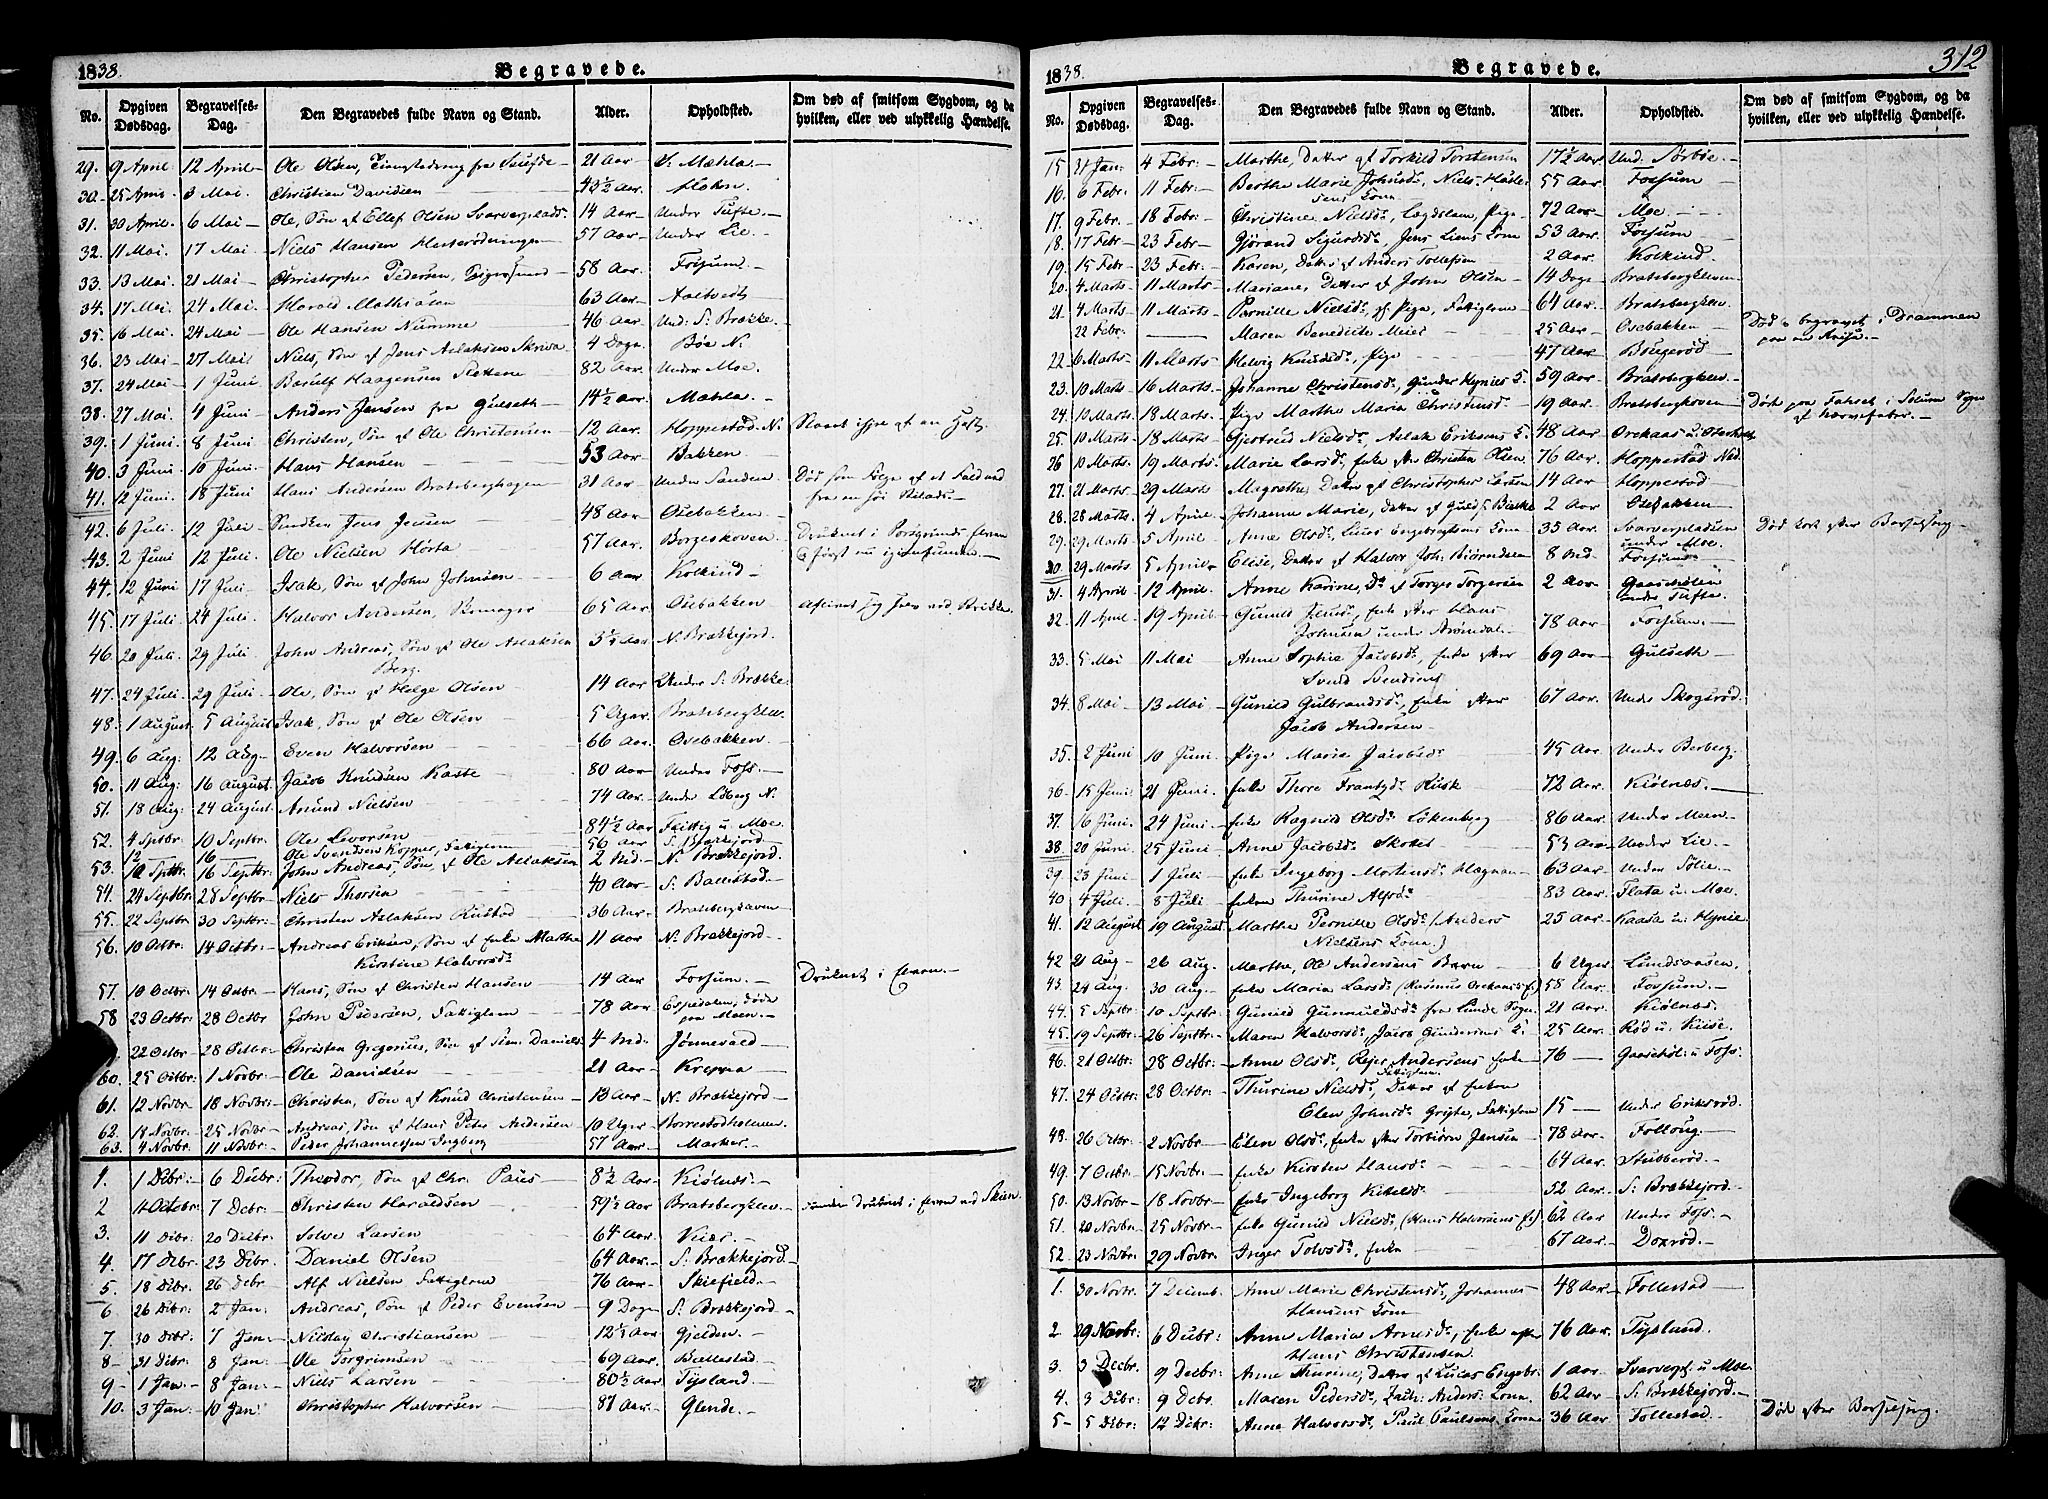 1838. Begravede.
No. Opgiven Dødsdag. Begravelses-Dag. Den Begravedes fulde Navn og Stand. Alder. Opholdsted. Om død af smitsom Sygdom, og da hvilken, eller ved ulykkelig Hændelse.
29. 9 April: 12 April Ole Olsen, fra 21 Aar V. Mæhla
30. 25 April 3 Mai Christian Davidsen 43½ Aar Holm
31. 30 April 6 Mai Ole, Søn af Ellef Olsen Svarverplads 14 Aar Under Tufte
32. 11 Mai. 17 Mai Niels Hansen 57 Aar Under Lie
33. 13 Mai. 21 Mai Christopher Pedersen, 58 Aar Forsum
34. 17 Mai. 24 Mai Harald Mathisen 63 Aar
35. 16 Mai 24 Mai Ole Hansen Numme 46 Aar Und: S: Brække
36. 23 Mai 27 Mai Niels, Søn af Jens Aslaksen 4 Dage Bøe N.
37. 24 Mai 1 Juni Haagensen 82 Aar Under Moe
38. 27 Mai 4 Juni Anders Jensen fra Gulseth 14½ Aar Mæhla
39. 1 Juni 8 Juni Christen, Søn af Ole Christensen 12 Aar Hoppestad N. Slaaet af en Hest
40. 3 Juni 10 Juni Hans Hansen 53 Aar Bakken
41. 12 Juni. 18 Juni Hans Andersen Bratsberghagen 31 Aar Under Sanden Død som Følge af et Fald ned
fra en høi
42. 6 Juli. 12 Juli Jens Jensen 48 Aar Osebakken
43. 2 Juni 12 Juli. Ole Nielsen Hørta 57 Aar. Borgeskoven Druknet i Porsgrunds Elven
først nu igjenfunden
44. 12 Juni 17 Juli Isak, Søn af John Johnsen 6 Aar Kolkind
45. 17 Juli 24 Juli Halvor Andersen, 65 Aar Osebakken
46. 20 Juli. 29 Juli John Andreas, Søn af Ole Aslaksen N. Brækkejord
Berg.
47. 24 Juli. 29 Juli Ole, Søn af Helge Olsen 14 Aar Under S. Brække
48. 1 August. 5 August Isak, Søn af Ole Olsen 5 Bratsbergklev
49. 6 Aug: 12 Aug. Even Halvorsen 66 Aar Osebakken
50. 11 Aug: 16 August Jacob Knudsen Kaste 80 Aar Under Foss
51. 18 Aug: 24 August Amund Nielsen 74 Aar Under N.
52. 4 Septbr 10 Septbr: Ole Levorsen 84½ Aar u. Moe
12 16 Ole Svendsen 56 Aar S. Brækkejord
53. Septbr: 16 Septbr: John Andreas, Søn af Ole Aslaksen 2 Md. N. Brækkejord
54. 24 Septbr: 28 Septbr Niels Thorsen 40 Aar S: Ballestad
55. 22 Septbr 30 Septbr: Christen Aslaksen Rustad 36 Aar
56. 10 Octbr: 14 Octbr: Andreas Eriksen, Søn af Enke Marthe 11 Aar N. Brækkejord
Kirstine Halvorsd:
57. 10 Octbr: 14 Octbr: Hans, Søn af Christen Hansen 14 Aar Forsum Druknet i Elven
58 23 Octbr: 28 Octbr John Pedersen, Fattiglem 78 Aar Espedalen, døde
paa Moen
22 Octbr 28 Octbr Christen Gregorius, Søn af Daniels: 4 Md: Jønnevald
60. 25 Octbr: 1 Novbr: Ole Danielsen 21 Aar Kreppa
61. 12 Novbr 18 Novbr: Christen, Søn af Knud Christensen 13 Aar N. Brækkejord
62. 18 Novbr. 25 Novbr Andreas, Søn af Hans Peter Andersen 10 Uger Borrestadholmen
63. 4 Novbr: 11 Novbr: Peder Johannessen Ingberg 57 Aar Marker
1. 1 Dcbr: 6 Decbr: Theodor, Søn af Chr. Paus 8½ Aar Kiølnæs
2 11 Octobr: 7 Dcbr: Christen Haraldsen 59½ Aar Bratsbergklev funden druknet i Elven ved Skien
3. 11 Dcbr: 20 Decbr: Solve Larsen 64 Aar. Veier
4. 17 Dcbr: 23 Dcbr: Daniel Olsen 64 Aar S. Brækkejord
5. 18 Dcbr: 26 Dcbr Alf Nielsen Fattiglem 76 Aar Skiefield
6 26 Dcbr: 2 Jan: Andreas, Søn af Peder Evensen 9 Dage S: Brækkejord
7. 30 Dcbr: 7 Jan: Nicolay Christiansen 12½ Aar Gjelden
8. 31 Dcbr: 8 Jan: Ole Torgrimsen 69 Aar. Ballestad
9. 1 Jan: 8 Jan: Niels Larsen 80½ Aar Tysland
10. 3 Jan: 10 Jan: Christopher Halvorsen 81 Aar Glende
1838. Begravede. 312
No. Opgiven Dødsdag. Begravelses-Dag. Den Begravedes fulde Navn og Stand. Alder. Opholdsted. Om død af smitsom Sygdom, og da hvilken, eller ved ulykkelig Hændelse.
15 31 Jan: 4 Febr: Marthe, Datter af Torkild Torstensen 17½ Aar Und: Sørbøe
16 6 Febr: 11 Febr: Berthe Marie Johnsd:, Niels 55 Aar Forsum
sens Kone
17. 9 Febr. 18 Febr: Christine Nielsd:, Lægdslem, Pige 72 Aar Moe
18. 17 Febr 23 Febr Gjørand Sigurdsd: Jens Liens Kone 53 Aar Forsum
19. 15 Febr 23 Febr: Karen, Datter af Anders Tollefsen 2 Aar. Kolkind
20. 4 Marts 11 Marts Mariane, Datter af John Olsen 14 Dage Bratsbergkleven
21. 4 Marts 11 Marts Pernille Nielsd: Pige, Fattiglem 64 Aar Bratsbergklev
22 Febr. Maren Benedicte Meier 25 Aar Osebakken Død o begravet i Drammen
paa en Reise
22. 6 Marts 11 Marts Helvig Knudsd:, Pige 47 Aar Bøugerød
23. 10 Marts 16 Marts Johanne Christensd:, Gunder Hynies K. 59 Aar Bratsbergklev
24. 10 Marts 18 Marts. Pige Marthe Maria Christensd: 19 Aar Døde paa i Solum Sogn
af Nervefeber
25. 10 Marts 18 Marts Gjertrud Nielsd: Aslak Eriksens K. 48 Aar
26 10 Marts. 19 Marts Marie Larsd:, Enke efter Christen Olsen 76 Aar Hoppestad Ned.
27. 21 Marts 29 Marts Magrethe, Datter af Christopher Larsen 14 Aar Hoppestad
28. 28 Marts. 4 April Johanne Marie, Datter af 2 Aar Osebakken
29. 29 Marts 5 April Anne Olsd:, Lucas Engebrigtsens Kone 35 Aar Svarverpladsen
under Moe Død kort efter Barselseng
30. 29 Marts 5 April Elise, Datter af Halvor Joh: Biørndalen 8 Md Forsum
31. 4 April 12 April. Anne Karine, D: af Torger Torgersen 2 Aar Gaasehølen
under Tufte
32. 11 April 19 April Gunild Jensd: Enke efter Hans
Johnsen under Brøndal 78 Aar Forsum
33. 5 Mai 11 Mai Anne Sophie Jacobsd:, Enke efter 69 Aar Gulseth
Svend Svendsens
34. 8 Mai 13 Mai Gunild Gulbrandsd:, Enke efter 67 Aar Under
Jacob Andersen
35. 2 Juni 10 Juni Pige Marie Jacobsd: 45 Aar Under Berberg
36. 15 Juni 21 Juni. Enke Thore Frantzd: Rusk 72 Aar Kiølnæs
37. 16 Juni 24 Juni Enke Ragnild Olsd: Løkenberg 86 Aar Under Moen
38. 20 Juni 25 Juni Anne Jacobsd: 53 Aar Under Lie
39. 23 Juni 1 Juli Enke Ingeborg Mortensd: Hægnan 63 Aar Under Følie
40 4 Juli 8 Juli Enken Thurine Alfsd: 83 Aar Flata u: Moe
41. 12 August 19 August Marthe Pernille Olsd: (Anders
Nielsens Kone) 25 Aar Kaasa u: Hynie
42 21 Aug 26 Aug. Marthe, Ole Andersens Barn 6 Uger Lundsaasen
43. 24 Aug. 30 Aug: Enke Maria Larsd: (Rasmus 55 Aar Forsum
44. 5 Septbr 10 Septbr: Gunild Gunnuldsd: fra Lunde Sogn 21 Aar Kiølnæs
45. 19 Septbr 26 Septbr: Maren Halvorsd:, Jacob Gundersens K. 25 Aar Rød u: Kiise
46. 21 Octbr: 28 Octbr: Anne Olsd:, Rejer Andersens Enke 76 Gaasehøl: u. Foss
Fattiglem
47. 24 Octbr: 28 Octbr: Thurine Nielsd: Datter af Enken
Elen Johnsd: Fattiglem 15 Under Eriksrød
48. 26 Octbr: 2 Novbr Elen Olsd:, Enke efter Torbiørn Jensen 78 Aar. Follaug
49. 7 Octbr: 15 Novbr Enke Kirsten Hansd: 64 Aar. Stubberød
50. 13 Novbr 18 Novbr: Enke Ingeborg Kittelsd: 52 Aar S: Brækkejord
51. 20 Novbr 25 Novbr: Enke Gunild Nielsd: (Hans Halvorsens E.) 62 Aar Under Foss
52. 23 Novbr: 29 Novbr: Inger Tolvsd:, Enke 67 Aar Doxrød
1. 30 Novbr. 7 Decemb. Anne Marie Christensd:, Johannes 48 Aar Follestad
Hansens Kone
2 29 Novbr: 6 Decbr: Anne Maria Arnesd:, Enke efter 76 Aar Tysland
Hans Christensen
3. 3 Decbr 9 Decbr: Anne Thurine, Datter af Lucas Engebr: 1 Aar Svarverpl: u Moe
4. 3 Dcbr: 9 Dcbr Maren Pedersd: Zach: Anders: Kone 62 Aar S: Brækkejord
5 5 Dcbr: 12 Dcbr: Anne Halvorsd:, Paul Paulsens Kone 36 Aar Follestad Død efter Barselseng.